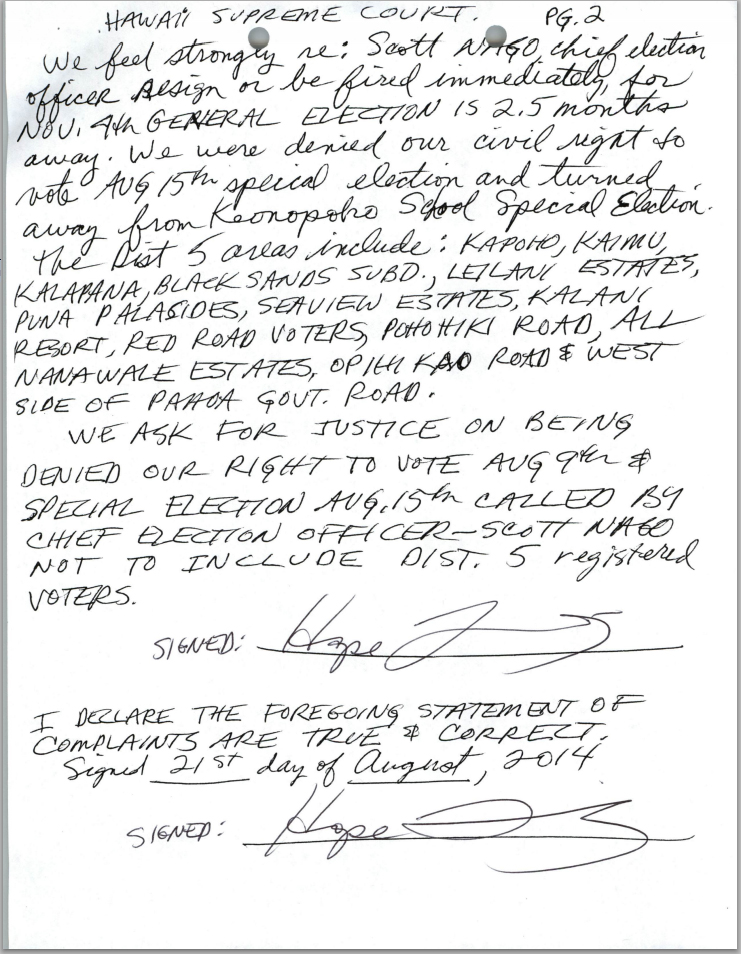 HAWAII SUPREME COURT. PG.2
We feel strongly re: Scott NAGO, chief election
officer Resign or be fired immediately, for
NOV. 4th GENERAL ELECTION IS 2.5 months
away. We were denied our civil right to
vote AUG 15th special election and turned
away from Keonopoko School Special Election.
The Dist 5 areas include: KAPOHO, KAIMU,
KALAPANA, BLACK SANDS SUBD., LEILANI ESTATES,
PUNA PALASIDES, SEAVIEW ESTATES, KALANI
RESORT, RED ROAD VOTERS, POHOHIKI ROAD, ALL
NANAWALE ESTATES, OPIHI KAO ROAD & WEST
SIDE OF PAHOA GOVT. ROAD.
WE ASK FOR JUSTICE ON BEING
DENIED OUR RIGHT TO VOTE AUG 9th &
SPECIAL ELECTION AUG. 15th CALLED BY
CHIEF ELECTION OFFICER-SCOTT NAGO
NOT TO INCLUDE DIST. 5 registered
VOTERS.
SIGNED: Hope
I DECLARE THE FOREGOING STATEMENT OF
COMPLAINTS ARE TRUE & CORRECT.
Signed 21st day of August, 2014
SIGNED: Hope